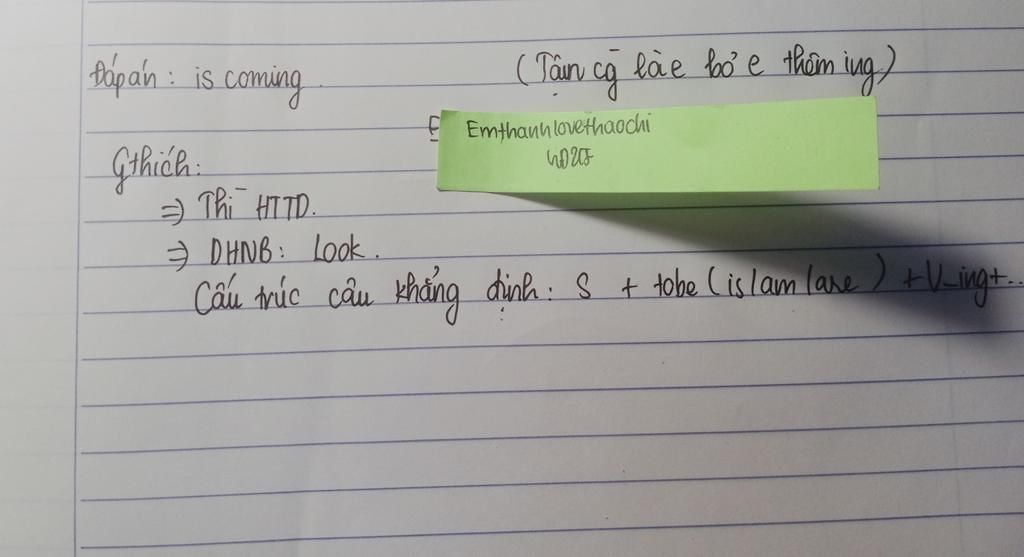 Đáp án: is coming. (Tận cg là e bỏ e thêm ing)
E
Emthanhlovethaochi
Gthích:
=> Thì HTTD.
=> DHNB: Look.
Cấu trúc câu khẳng định: S + tobe (is/am/are) + V_ing+...